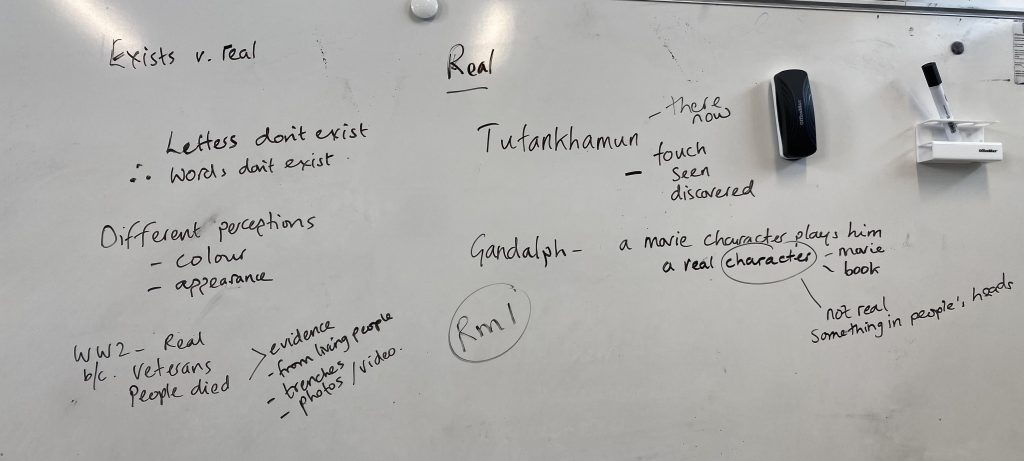 Exists v. real
Letters don't exist
∴ words don't exist.
Different perceptions
- colour
- appearance
WW2 - Real
b/c. veterans
People died
> evidence
- from living people
- trenches
- photos / video.
Real
Tutankhamun
- there
now
- touch
seen
discovered
Gandalph - a movie character plays him
a real character - movie
- book
not real
Something in people's heads
Rm 1